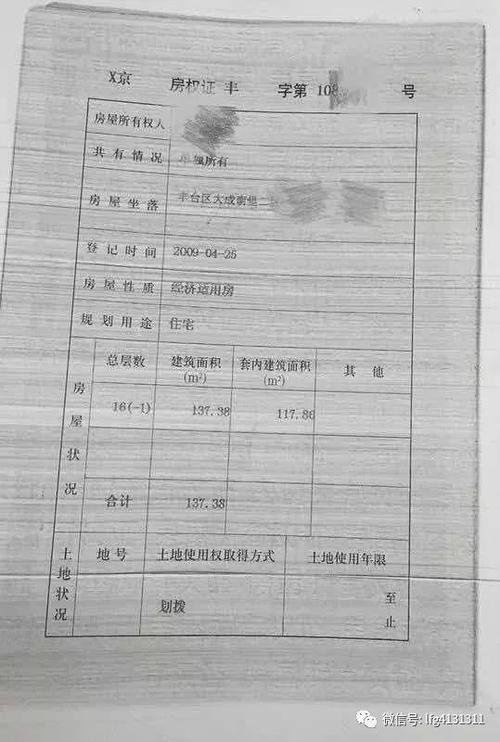 X京 房权证 丰 字第 108 号
房屋所有权人
共有情况 单独所有
房屋坐落 丰台区大成南里二
登记时间 2009-04-25
房屋性质 经济适用房
规划用途 住宅
房屋状况
总层数 建筑面积(m²) 套内建筑面积(m²) 其他
16(-1) 137.38 117.86
合计 137.38
土地状况
地号 土地使用权取得方式 土地使用年限
划拨 至
止
微信号: lfg4131311